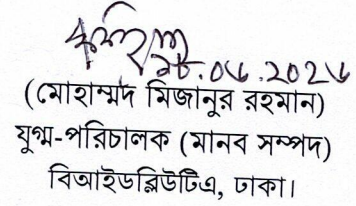 ২৮.০৬.২০২৬
(মোহাম্মদ মিজানুর রহমান)
যুগ্ম-পরিচালক (মানব সম্পদ)
বিআইডব্লিউটিএ, ঢাকা।